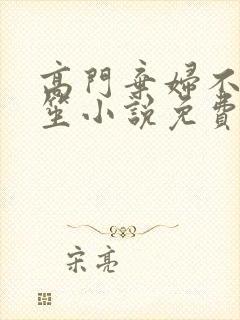 高門棄婦不
笙小說免費
宋亮